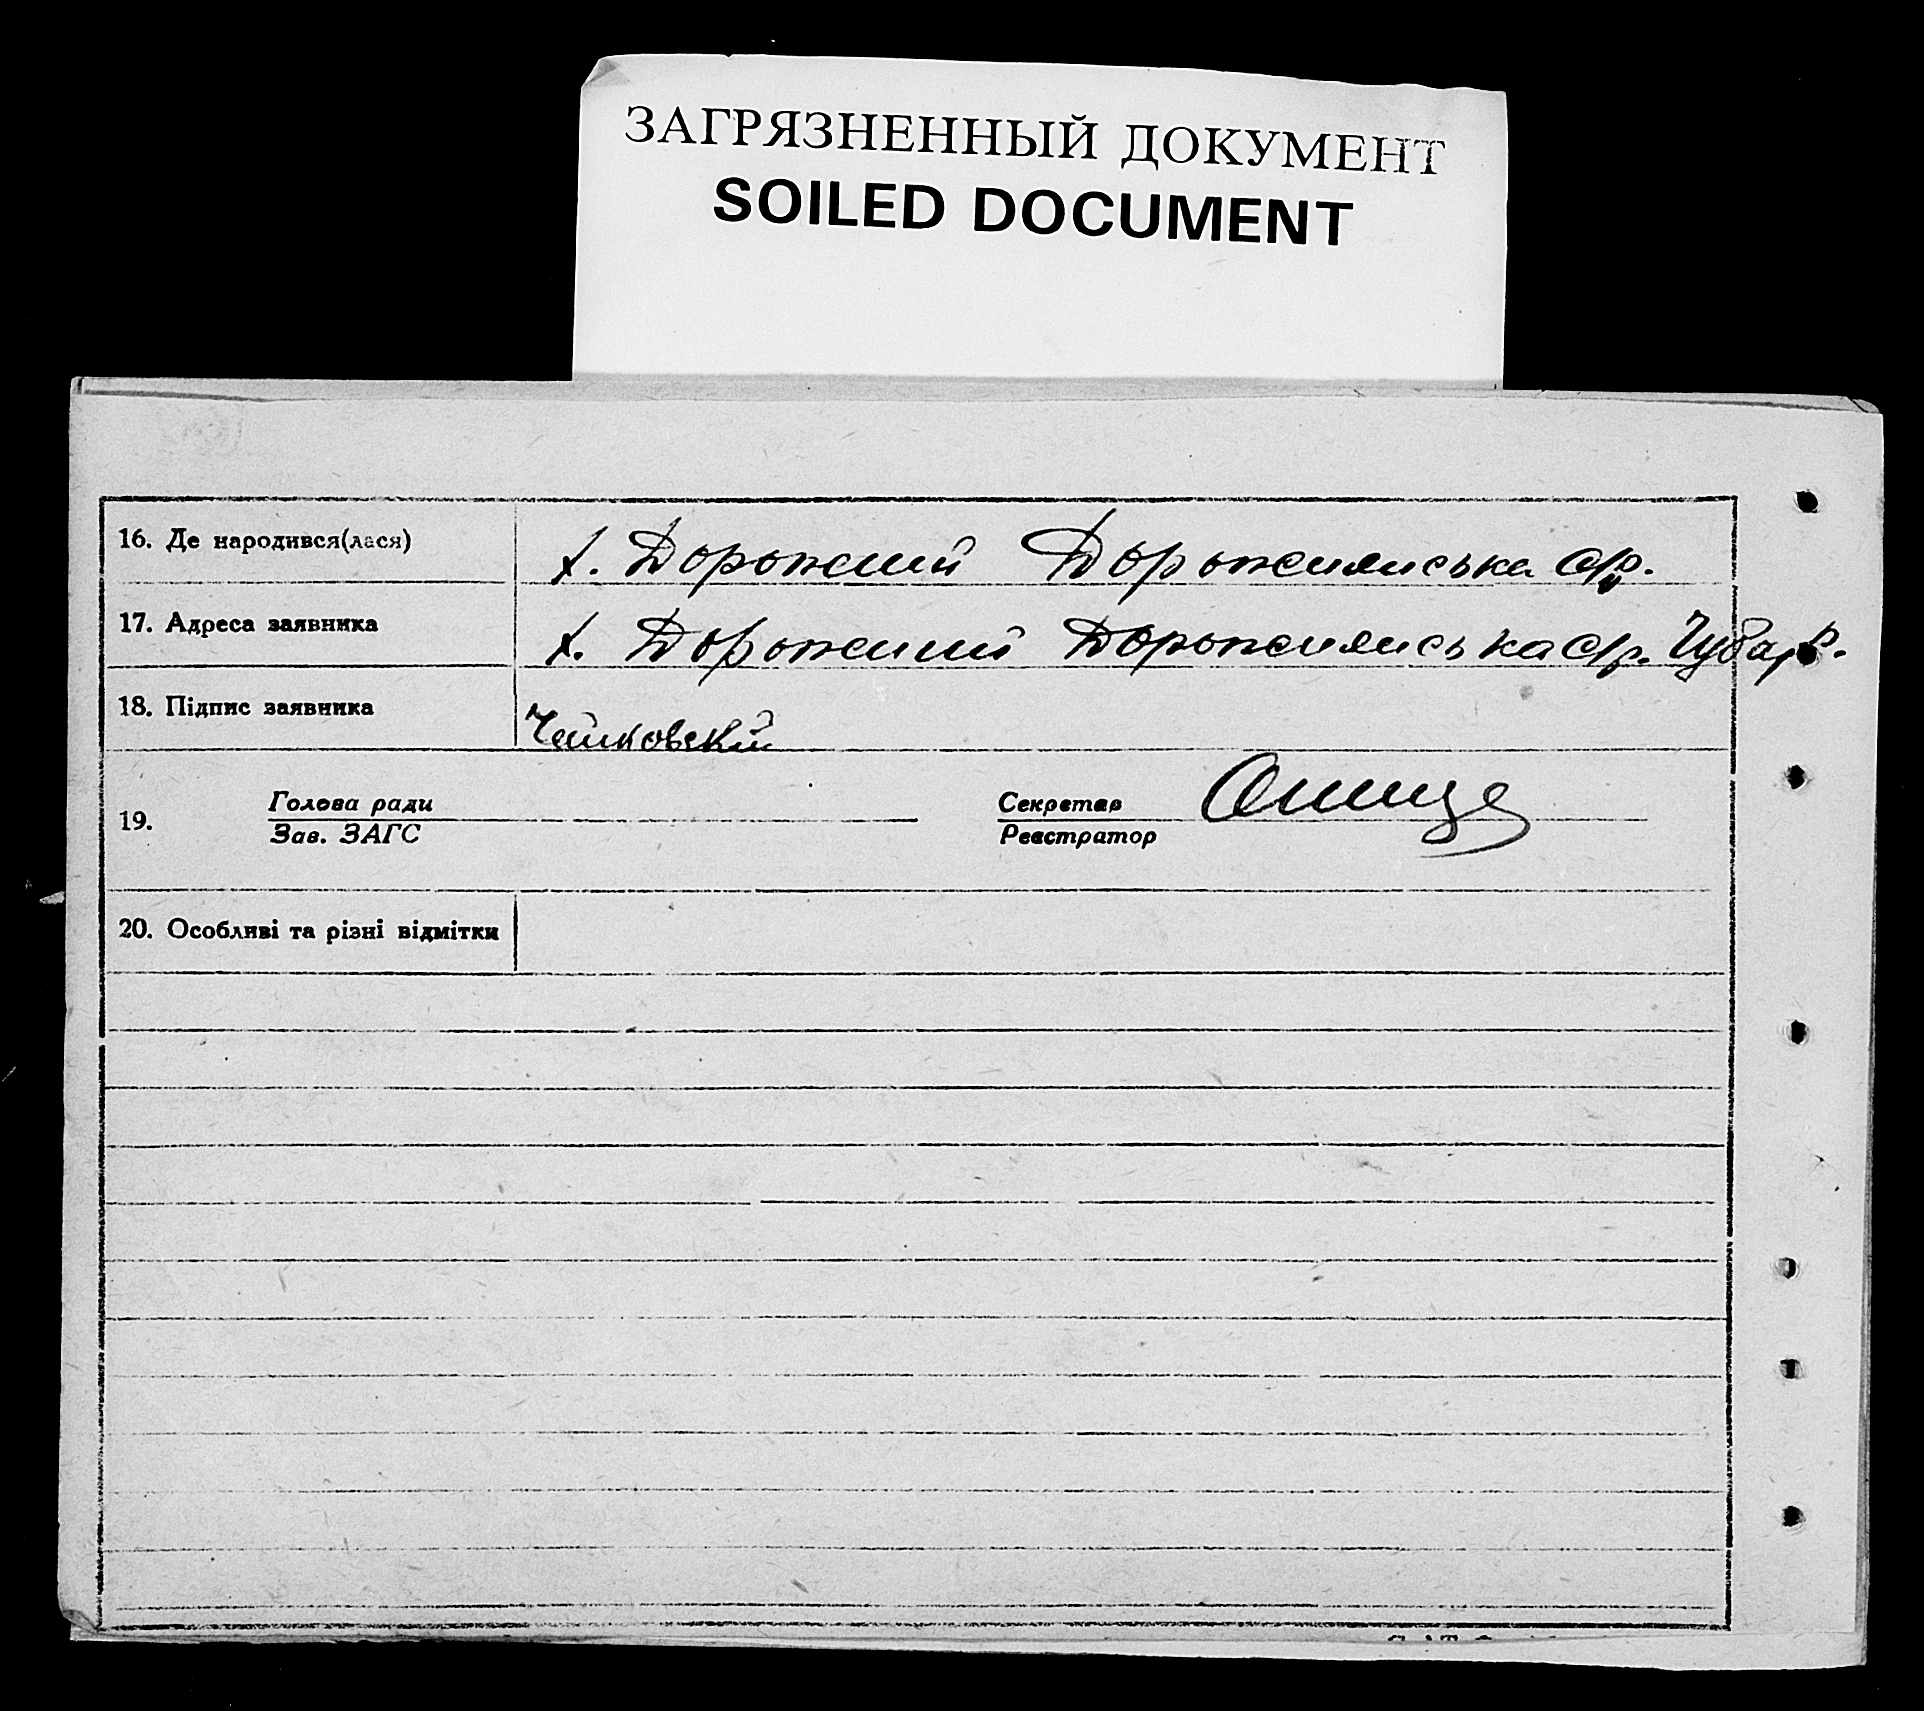 ЗАГРЯЗНЕННЫЙ ДОКУМЕНТ
SOILED DOCUMENT
16. Де народився(лася) х. Дорожний Дорожнянська с/р.
17. Адреса заявника х. Дорожний Дорожнянська с/р. Чубар.
18. Підпис заявника Чайковскій
19. Голова ради Секретар
Зав. ЗАГС Реєстратор
20. Особливі та різні відмітки